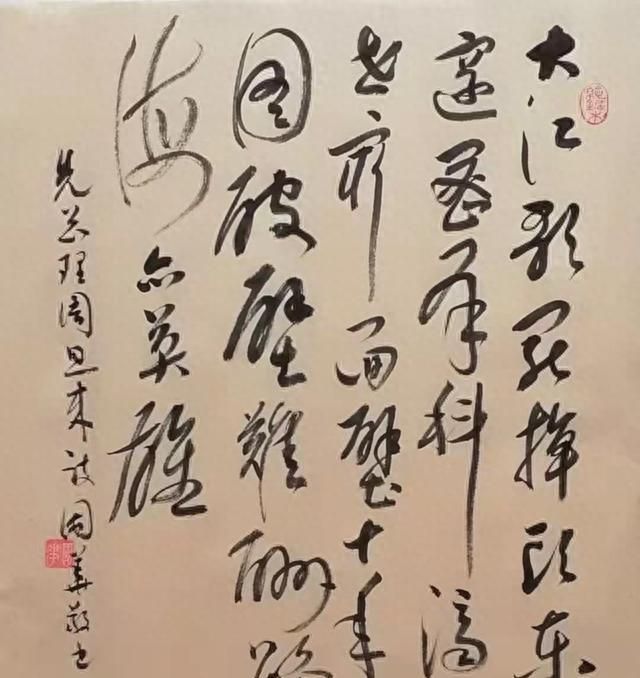 大江歌罷掉头東
邃密群科濟
世穷面壁十年
图破壁難酬蹈
海亦英雄
先总理周恩来诗周華敬书